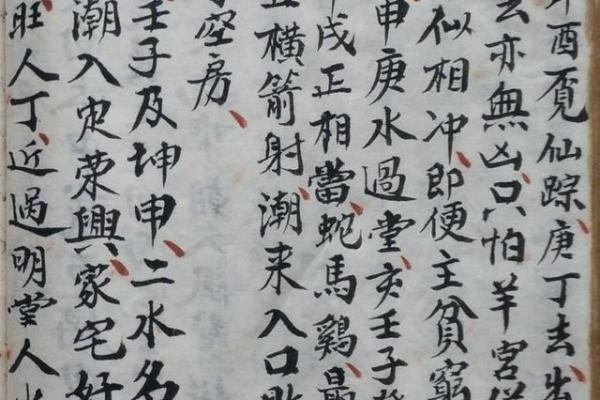 酉覓仙踪、庚丁去、出
去亦無凶、只怕羊宮
似相冲、即便主貧窮
申庚水過堂、亥壬子
戌正相當、蛇馬鷄、最
橫箭射、潮来入口
空房、
壬子及坤申、二水名
潮入定荣興、家宅好
旺人丁、近過明堂人